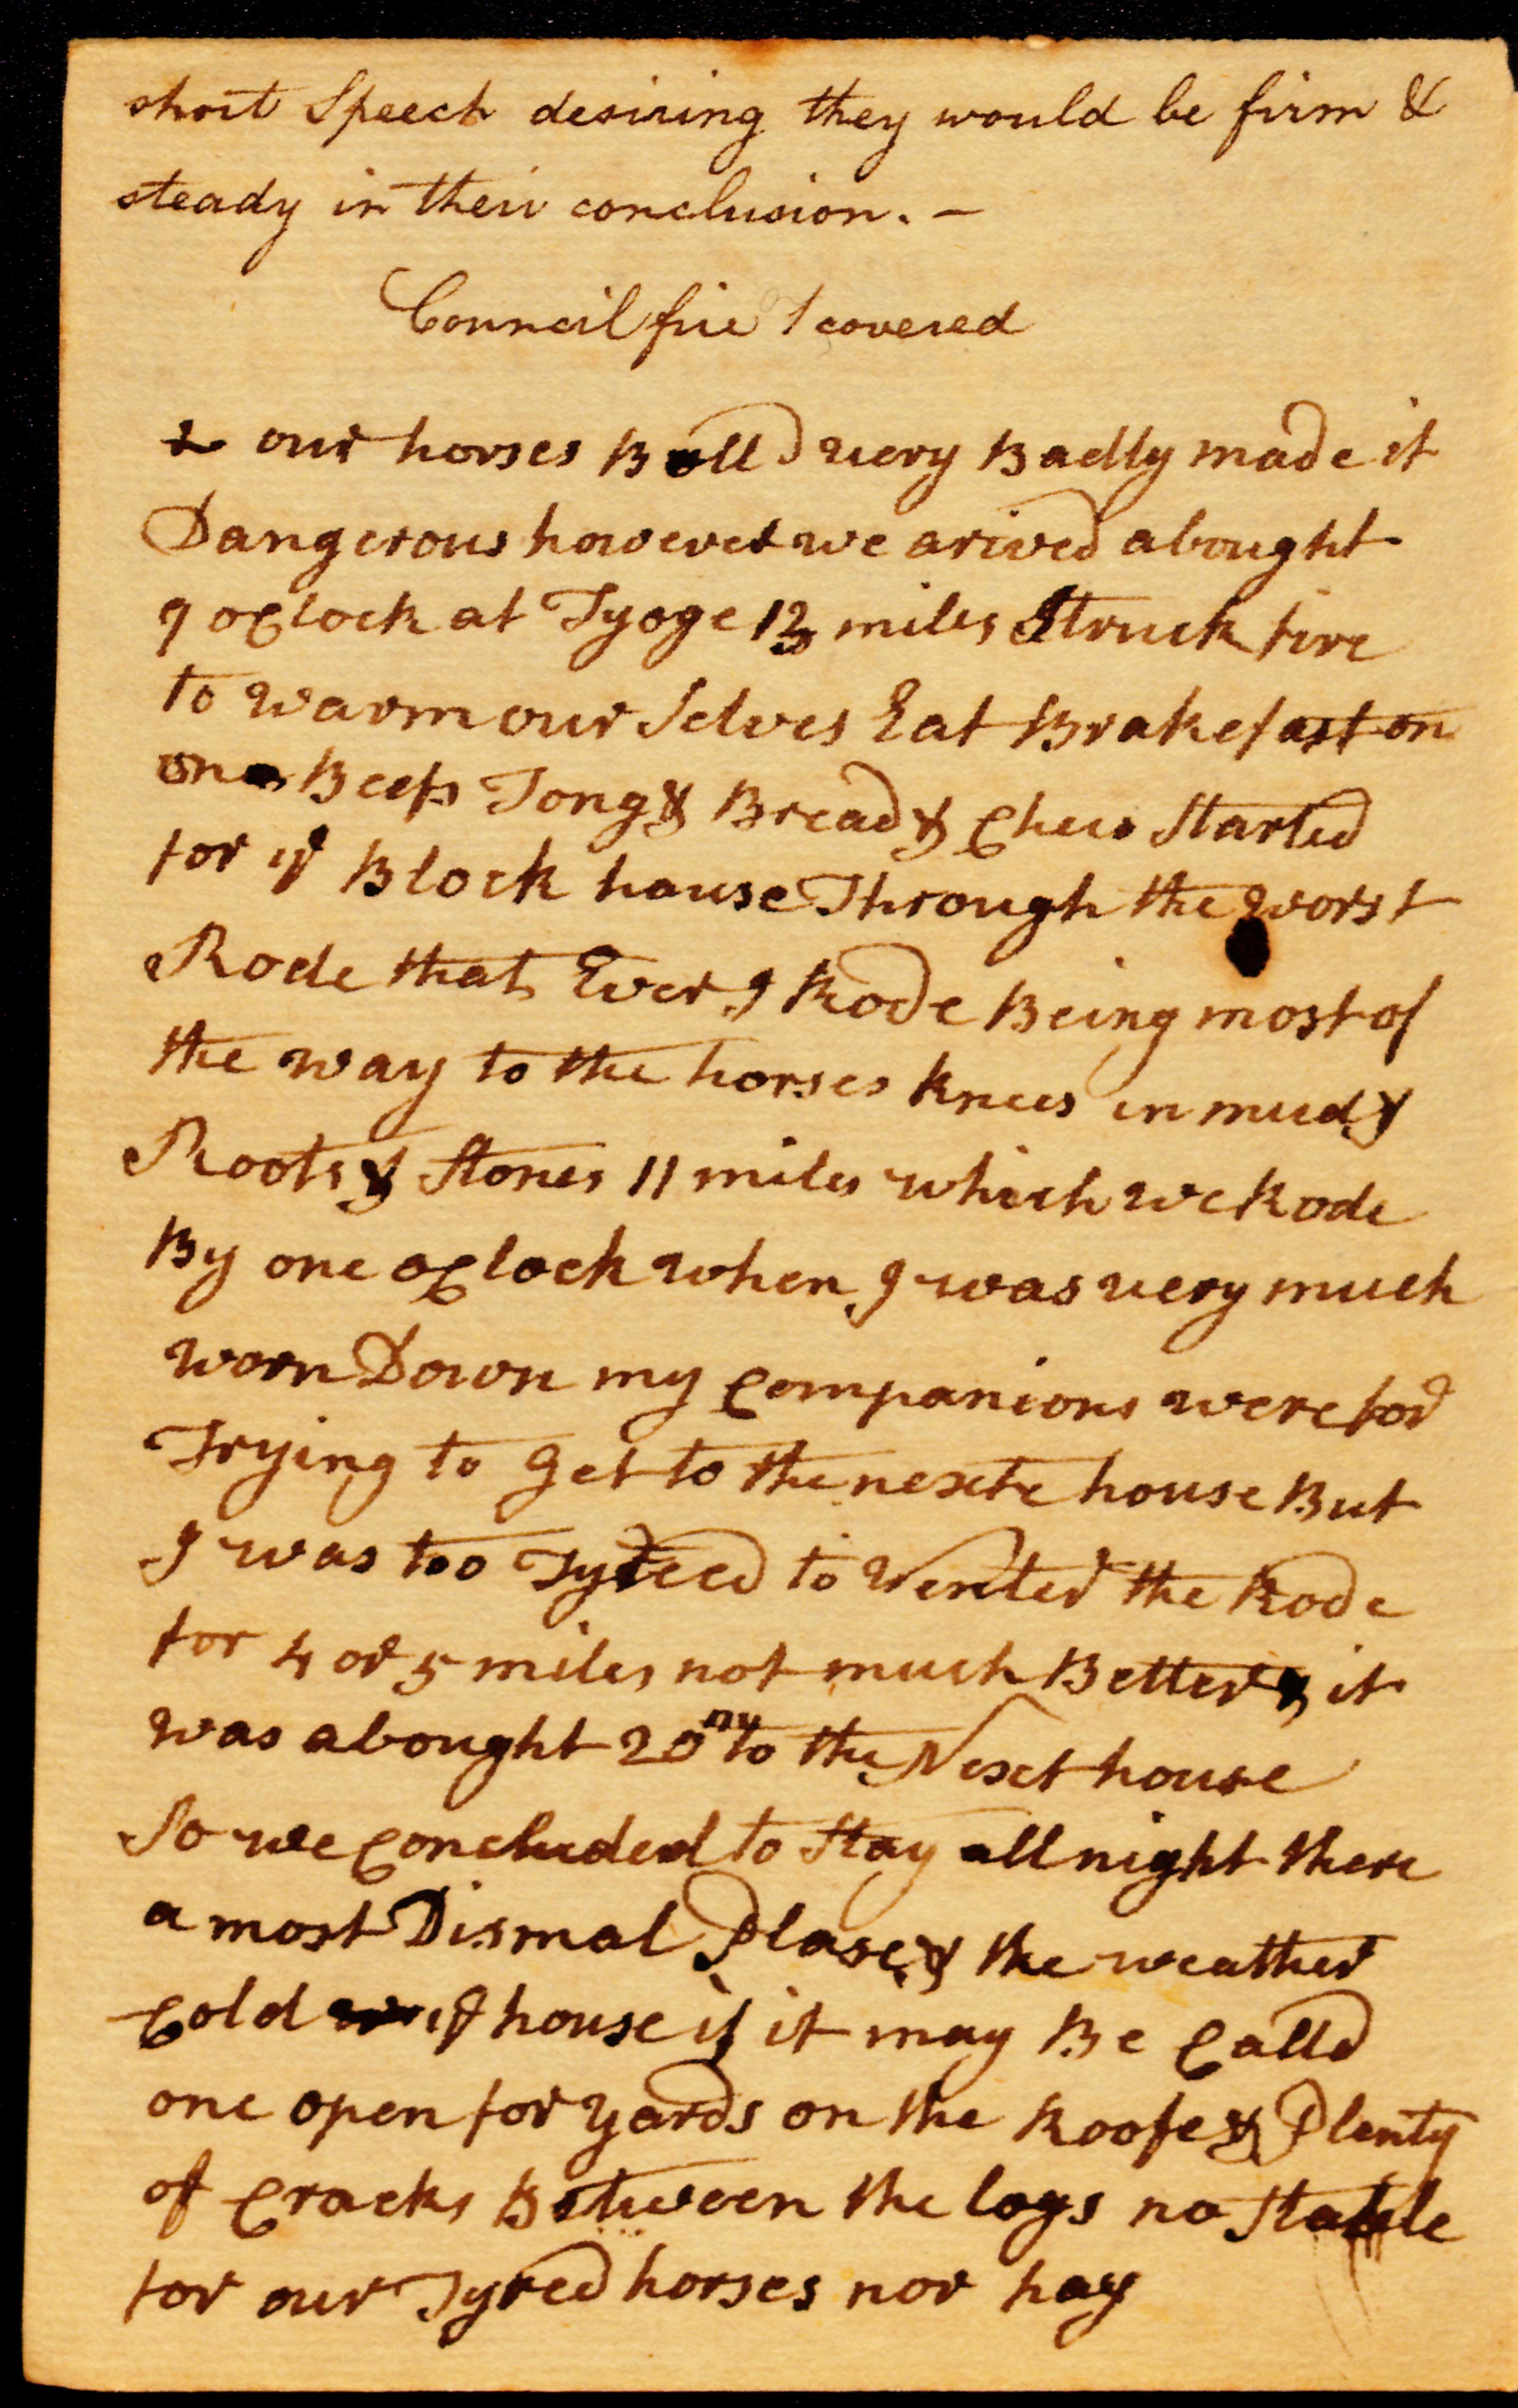 short Speech desiring they would be firm &
steady in their conclusion. –
Council fire covered
& our horses Ball'd very Badly made it
Dangerous however we arived abought
9 oClock at Tyoge 13 miles Struck fire
to warm our Selves Eat Brakefast on
one Beefs Tong & Bread & Chees Started
for ye Block house Through the worst
Rode that Ever I Rode Being most of
the way to the horses knees in mud &
Roots & Stones 11 miles which we Rode
By one oClock when I was very much
worn Down my Companions were for
Trying to Get to the nexte house But
I was too Tyreed to Venter the Rode
for 4 or 5 miles not much Better & it
was abought 20 to the Next house
So we Concluded to Stay all night there
a most Dismal Plase & the weather
Cold ye house if it may Be Calld
one open for yards on the Roofe & Plenty
of Cracks Between the logs no Stable
for our Tyred horses nor hay